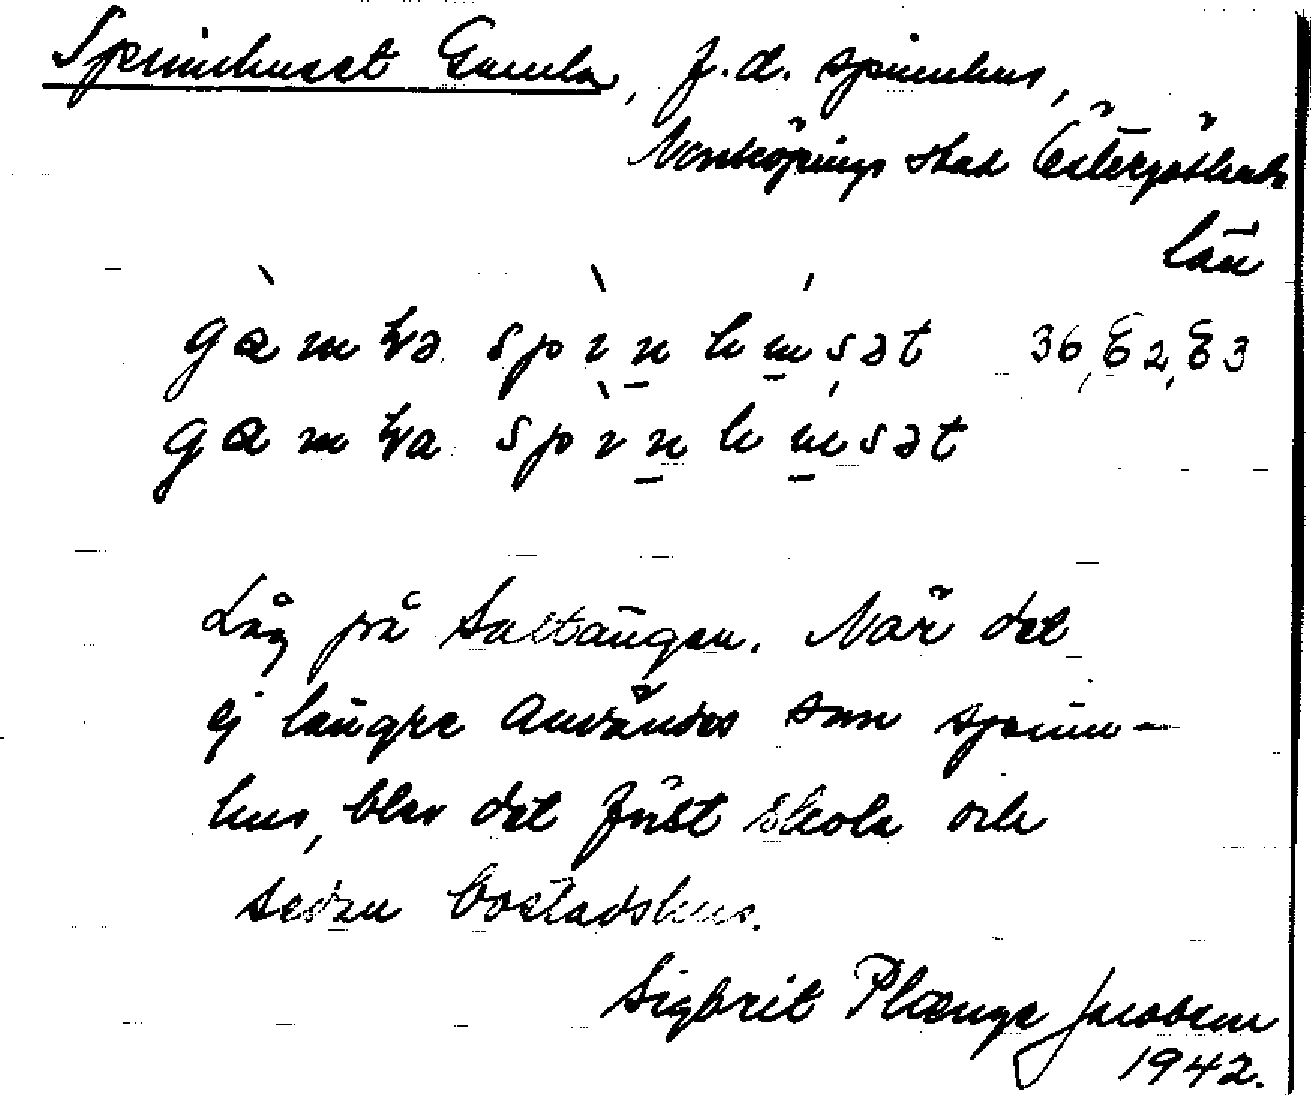 Spinnhuset Gamla, f.d. spinnhus,
Norrköpings stad Östergötlands
län
gàmɫa spìnhúsət 36, E2, E3
gamɫa spìnhúsət
Låg på Saltängen. När det
ej längre användes som spinn-
hus, blev det först skola och
sedan bostadshus.
Sigbrit Plænge Jacobson
1942.